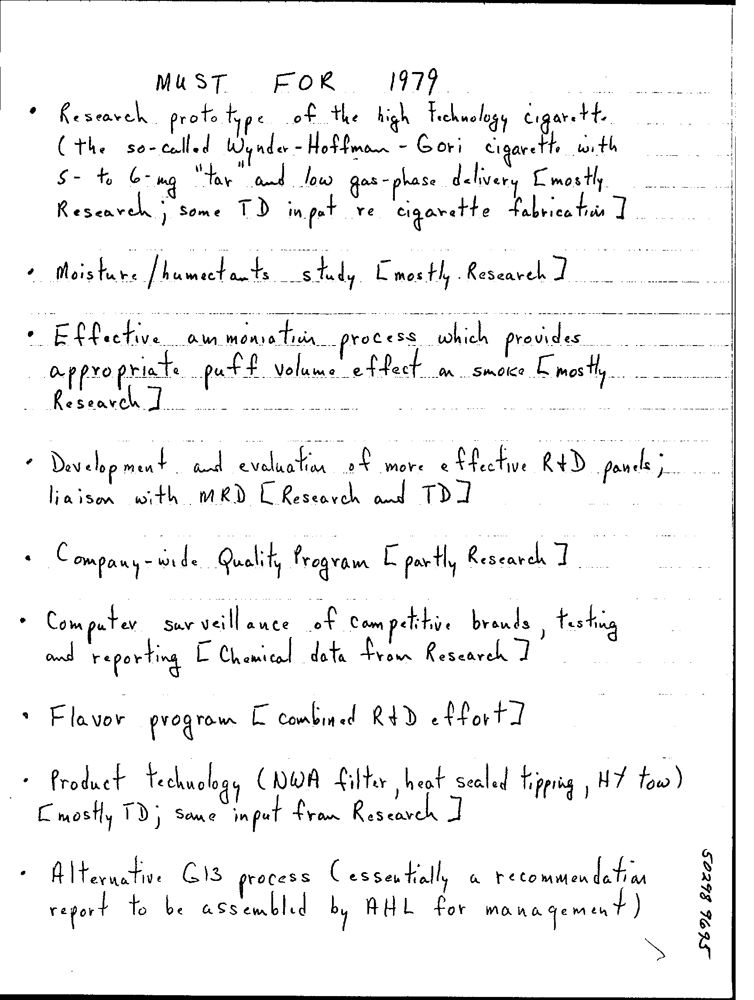 MUST FOR 1979
• Research prototype of the high technology cigarette
(the so-called Wynder-Hoffman-Gori cigarette with
5- to 6-mg "tar" and low gas-phase delivery [mostly
Research; some TD input re cigarette fabrication]
• Moisture/humectants study [mostly Research]
• Effective ammoniation process which provides
appropriate puff volume effect on smoke [mostly
Research]
• Development and evaluation of more effective R+D panels;
liaison with MRD [Research and TD]
• Company-wide Quality Program [partly Research]
• Computer surveillance of competitive brands, testing
and reporting [Chemical data from Research]
• Flavor program [combined R+D effort]
• Product technology (NWA filter, heat sealed tipping, HY tow)
[mostly TD; some input from Research]
• Alternative G13 process (essentially a recommendation
report to be assembled by AHL for management)
50298 9695